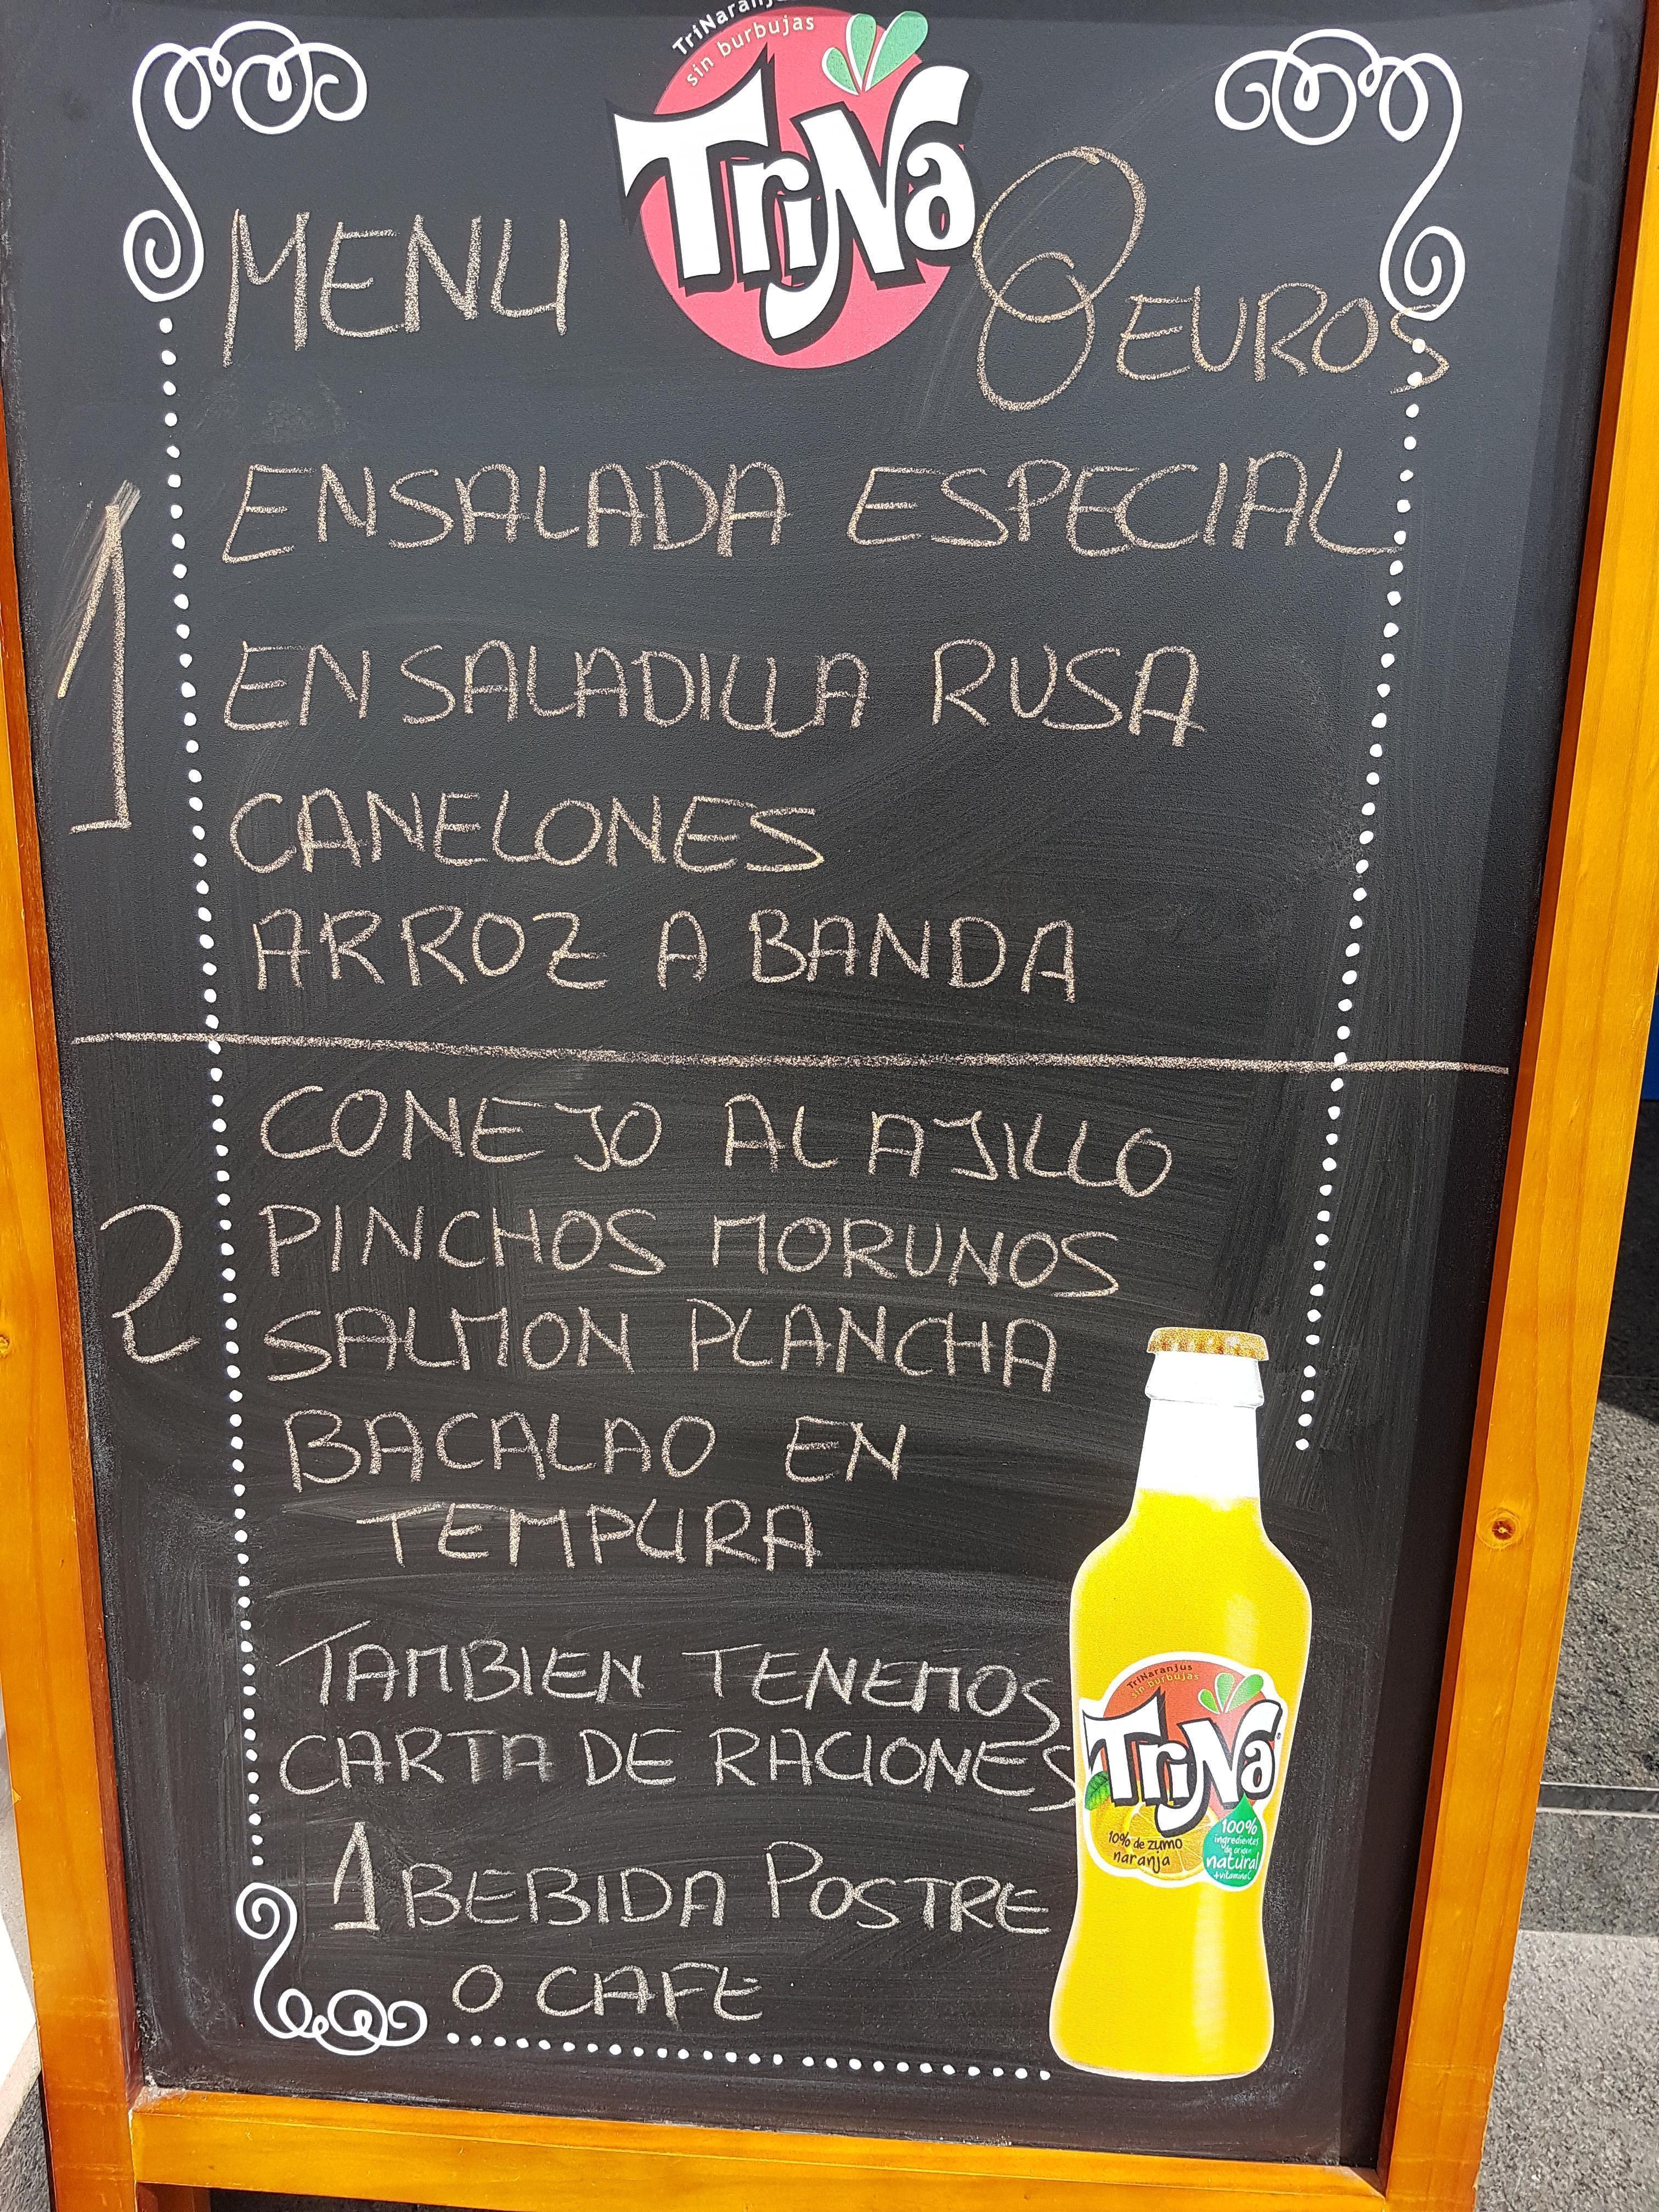 TriNaranjus
sin burbujas
TriNa
MENU 8 EUROS
1
ENSALADA ESPECIAL
ENSALADILLA RUSA
CANELONES
ARROZ A BANDA
2
CONEJO AL AJILLO
PINCHOS MORUNOS
SALMON PLANCHA
BACALAO EN
TEMPURA
TAMBIEN TENEMOS
CARTA DE RACIONES
1 BEBIDA POSTRE
O CAFE
TriNaranjus
sin burbujas
TriNa
10% de zumo
naranja
100%
ingredientes
de origen
natural
+vitaminas